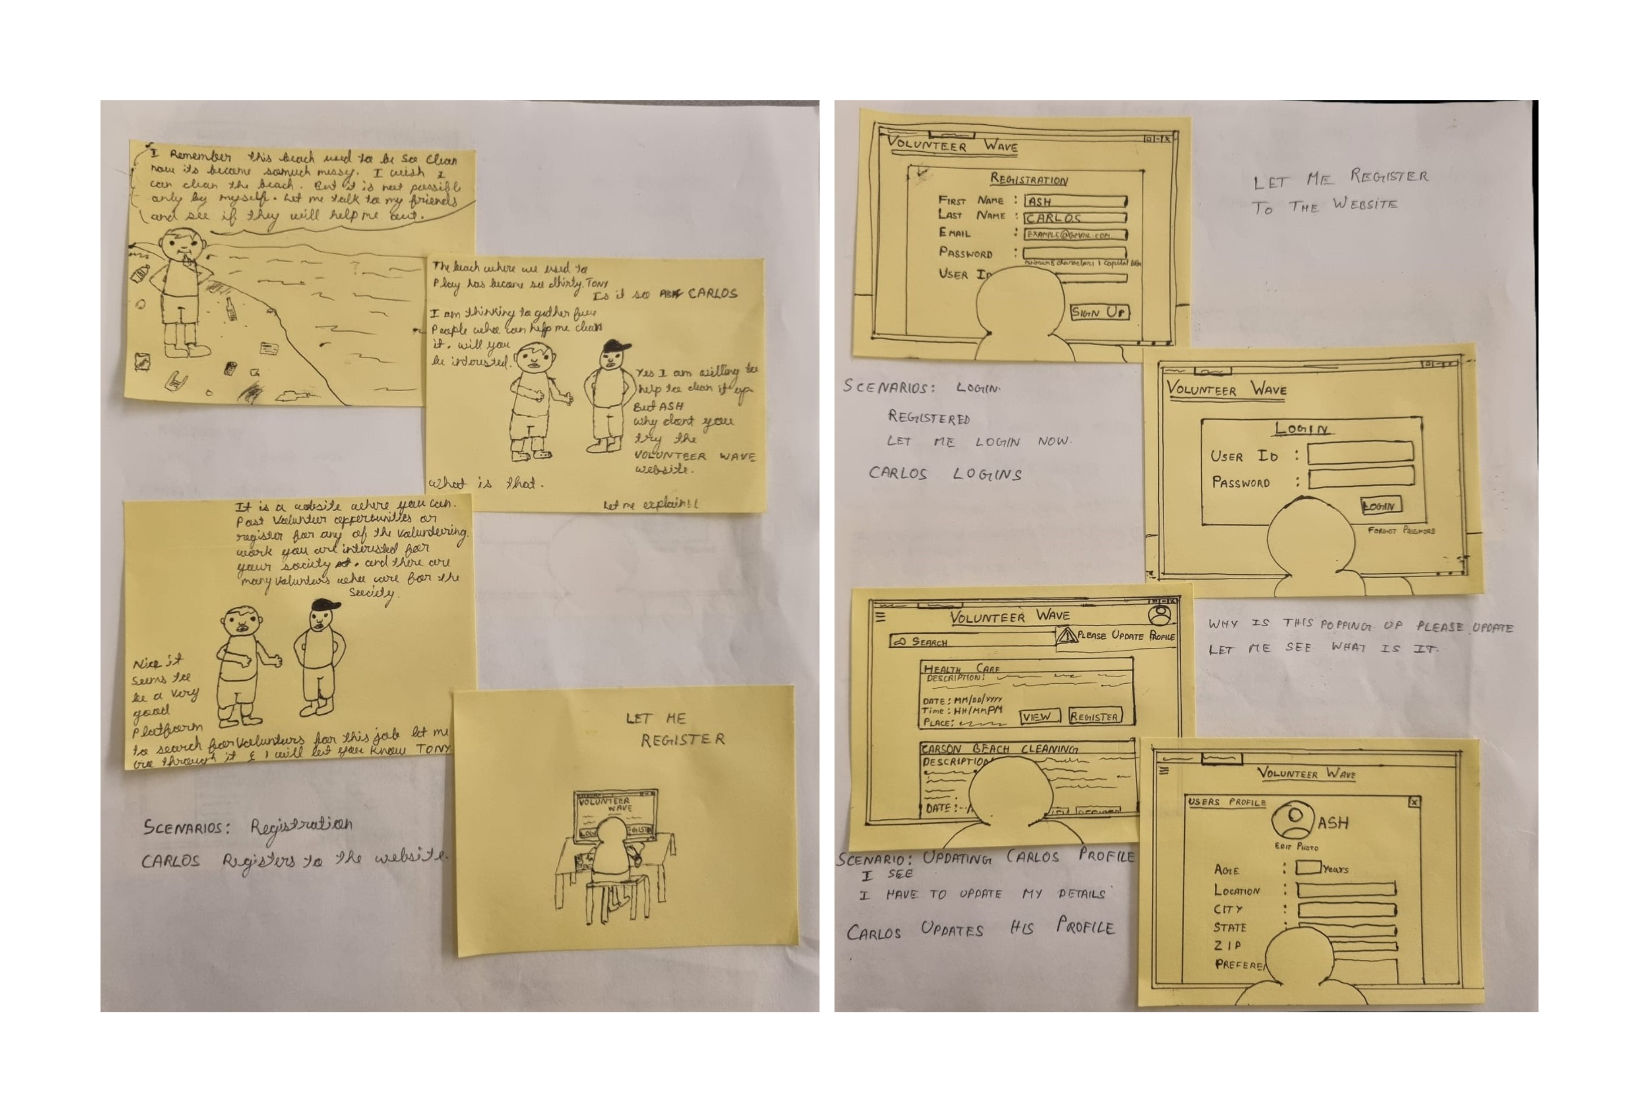 I Remember this beach used to be so clean
now its became somuch messy. I wish I
can clean the beach. But it is not possible
only by myself. Let me talk to my friends
and see if they will help me out.
The beach where we used to
Play has became so dhirty. TONY
Is it so CARLOS
I am thinking to gather few
People who can help me clean
it. will you
be intrested.
Yes I am willing to
help to clean it up.
But ASH
why dont you
try the
VOLUNTEER WAVE
website.
What is that.
Let me explain!!
It is a website where you can.
Post Voluntur oppertunities or
register for any of the Volunteering
work you are interested for
your society . and there are
many Volunturs who care for the
Society.
Nice it
seems to
be a very
good
Platform
to search for Volunturs for this job let me
go through it & I will let you know TONY
LET ME
REGISTER
VOLUNTEER
WAVE
SCENARIOS: Registration
CARLOS Registers to the website.
VOLUNTEER WAVE
REGISTRATION
FIRST NAME : ASH
LAST NAME : CARLOS
EMAIL : EXAMPLE@GMAIL.COM
PASSWORD :
characters 1 capital
USER ID
SIGN UP
LET ME REGISTER
TO THE WEBSITE
SCENARIOS: LOGIN.
REGISTERED
LET ME LOGIN NOW.
CARLOS LOGINS
VOLUNTEER WAVE
LOGIN
USER ID :
PASSWORD :
LOGIN
FORGOT PASSWORD
VOLUNTEER WAVE
SEARCH
PLEASE UPDATE PROFILE
HEALTH CARE
DESCRIPTION:
DATE: MM/DD/YYYY
Time: HH/MM PM
PLACE:
VIEW
REGISTER
CARSON BEACH CLEANING
DESCRIPTION
DATE:
WHY IS THIS POPPING UP PLEASE UPDATE
LET ME SEE WHAT IS IT.
SCENARIO: UPDATING CARLOS PROFILE
I SEE
I HAVE TO UPDATE MY DETAILS
CARLOS UPDATES HIS PROFILE
VOLUNTEER WAVE
USERS PROFILE
X
ASH
EDIT PHOTO
AGE : Years
LOCATION :
CITY :
STATE :
ZIP
PREFERE